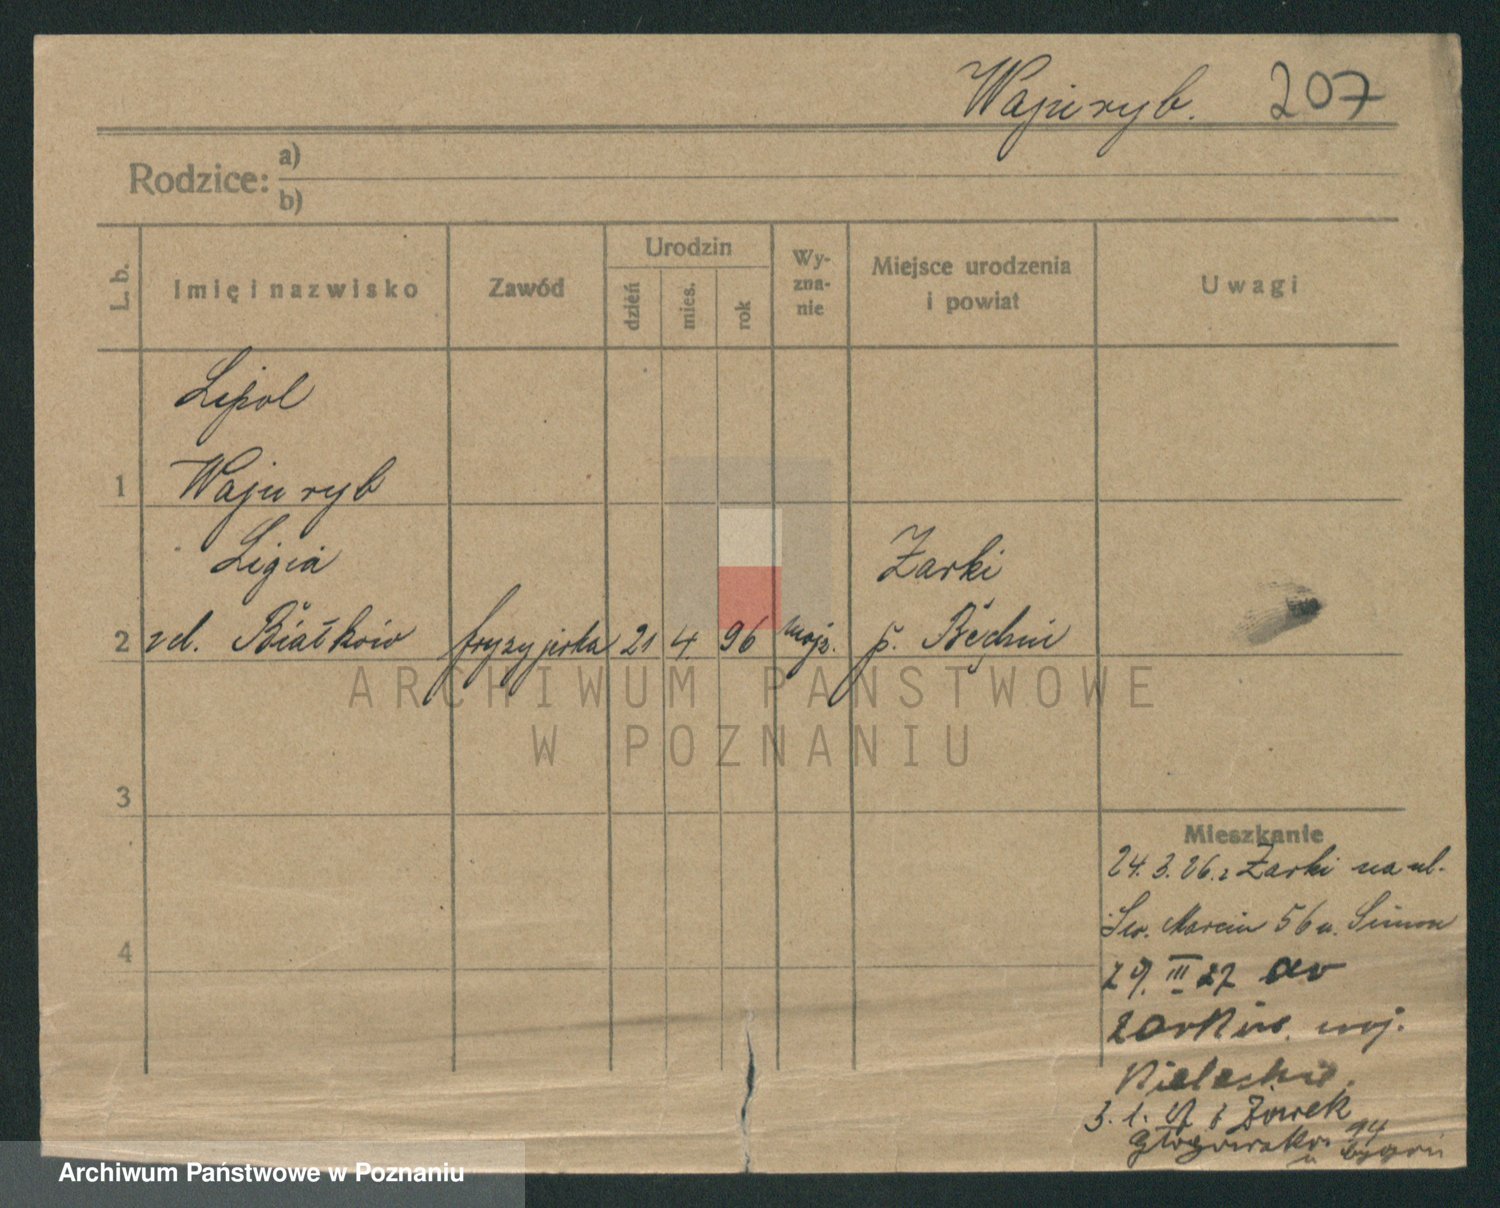 Wajuryb. 207
Rodzice: a)
b)
L. b. Imię i nazwisko Zawód Urodzin dzień mies. rok Wy-zna-nie Miejsce urodzenia i powiat Uwagi
Lipol
1 Wajuryb
Ligia Żarki
2 zd. Białków fryzyjerka 21 4 96 mojż. p. Będzin
ARCHIWUM PAŃSTWOWE
W POZNANIU
3
Mieszkanie
24. 3. 26. z Żarki na ul.
Św. Marcin 56 u. Simon
4
29. III 27 do
Żarki woj.
Kieleckie.
3. 1. z Żarek
Głogowska 94
u
Archiwum Państwowe w Poznaniu